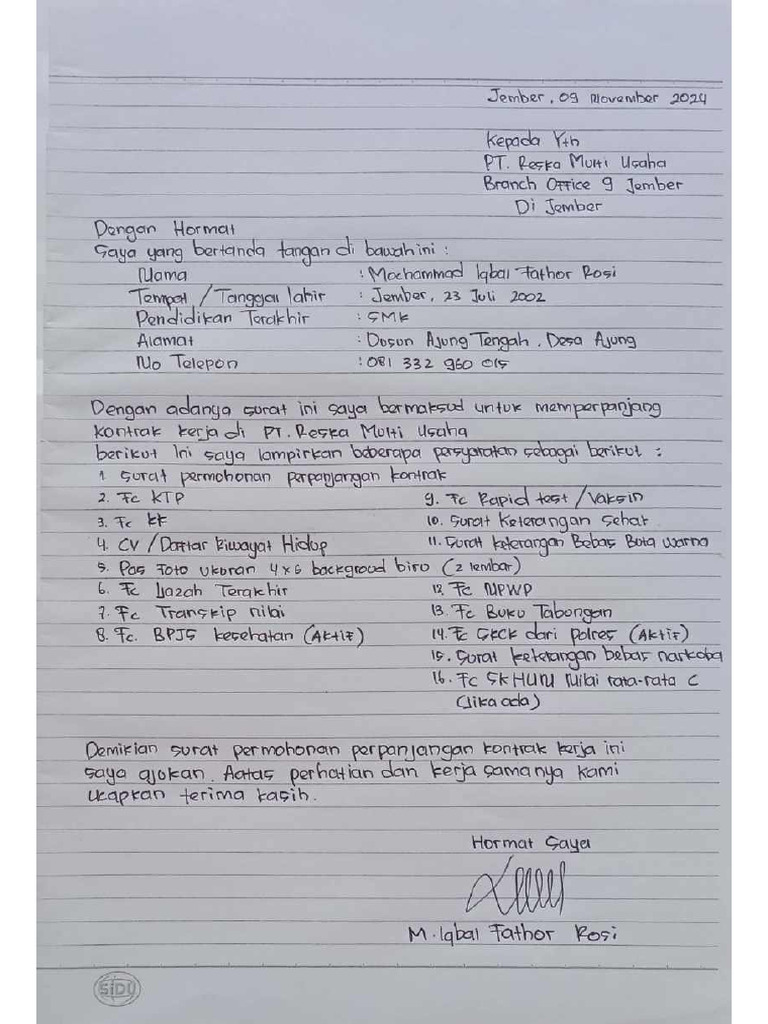 Jember, 09 November 2024
Kepada Yth
PT. Reska Multi Usaha
Branch Office 9 Jember
Di Jember
Dengan Hormat
Saya yang bertanda tangan di bawah ini :
Nama : Mochammad Iqbal Fathor Rosi
Tempat / Tanggal lahir : Jember, 23 Juli 2002
Pendidikan Terakhir : SMK
Alamat : Dosun Ajung Tengah, Desa Ajung
No Telepon : 081 332 960 015
Dengan adanya surat ini saya bermaksud untuk memperpanjang
kontrak kerja di PT. Reska Multi Usaha
berikut ini saya lampirkan beberapa persyaratan sebagai berikut :
1. Surat permohonan perpanjangan kontrak
2. Fc KTP
3. Fc KK
4. CV / Daftar Riwayat Hidup
5. Pas Foto ukuran 4x6 backgroud biro (2 lembar)
6. Fc Ijazah Terakhir
7. Fc Transkip nilai
8. Fc. BPJS kesehatan (Aktif)
9. Fc Rapid test / Vaksin
10. Surat Keterangan Sehat
11. Surat keterangan Bebas Buta warna
12. Fc NPWP
13. Fc Buku Tabongan
14. Fc SKCK dari polres (Aktif)
15. Surat keterangan bebas narkoba
16. Fc SKHUN Nilai rata-rata C
(Jika ada)
Demikian surat permohonan perpanjangan kontrak kerja ini
saya ajokan. Aatas perhatian dan kerja samanya kami
ucapkan terima kasih.
Hormat Saya
M. Iqbal Fathor Rosi
SIDU